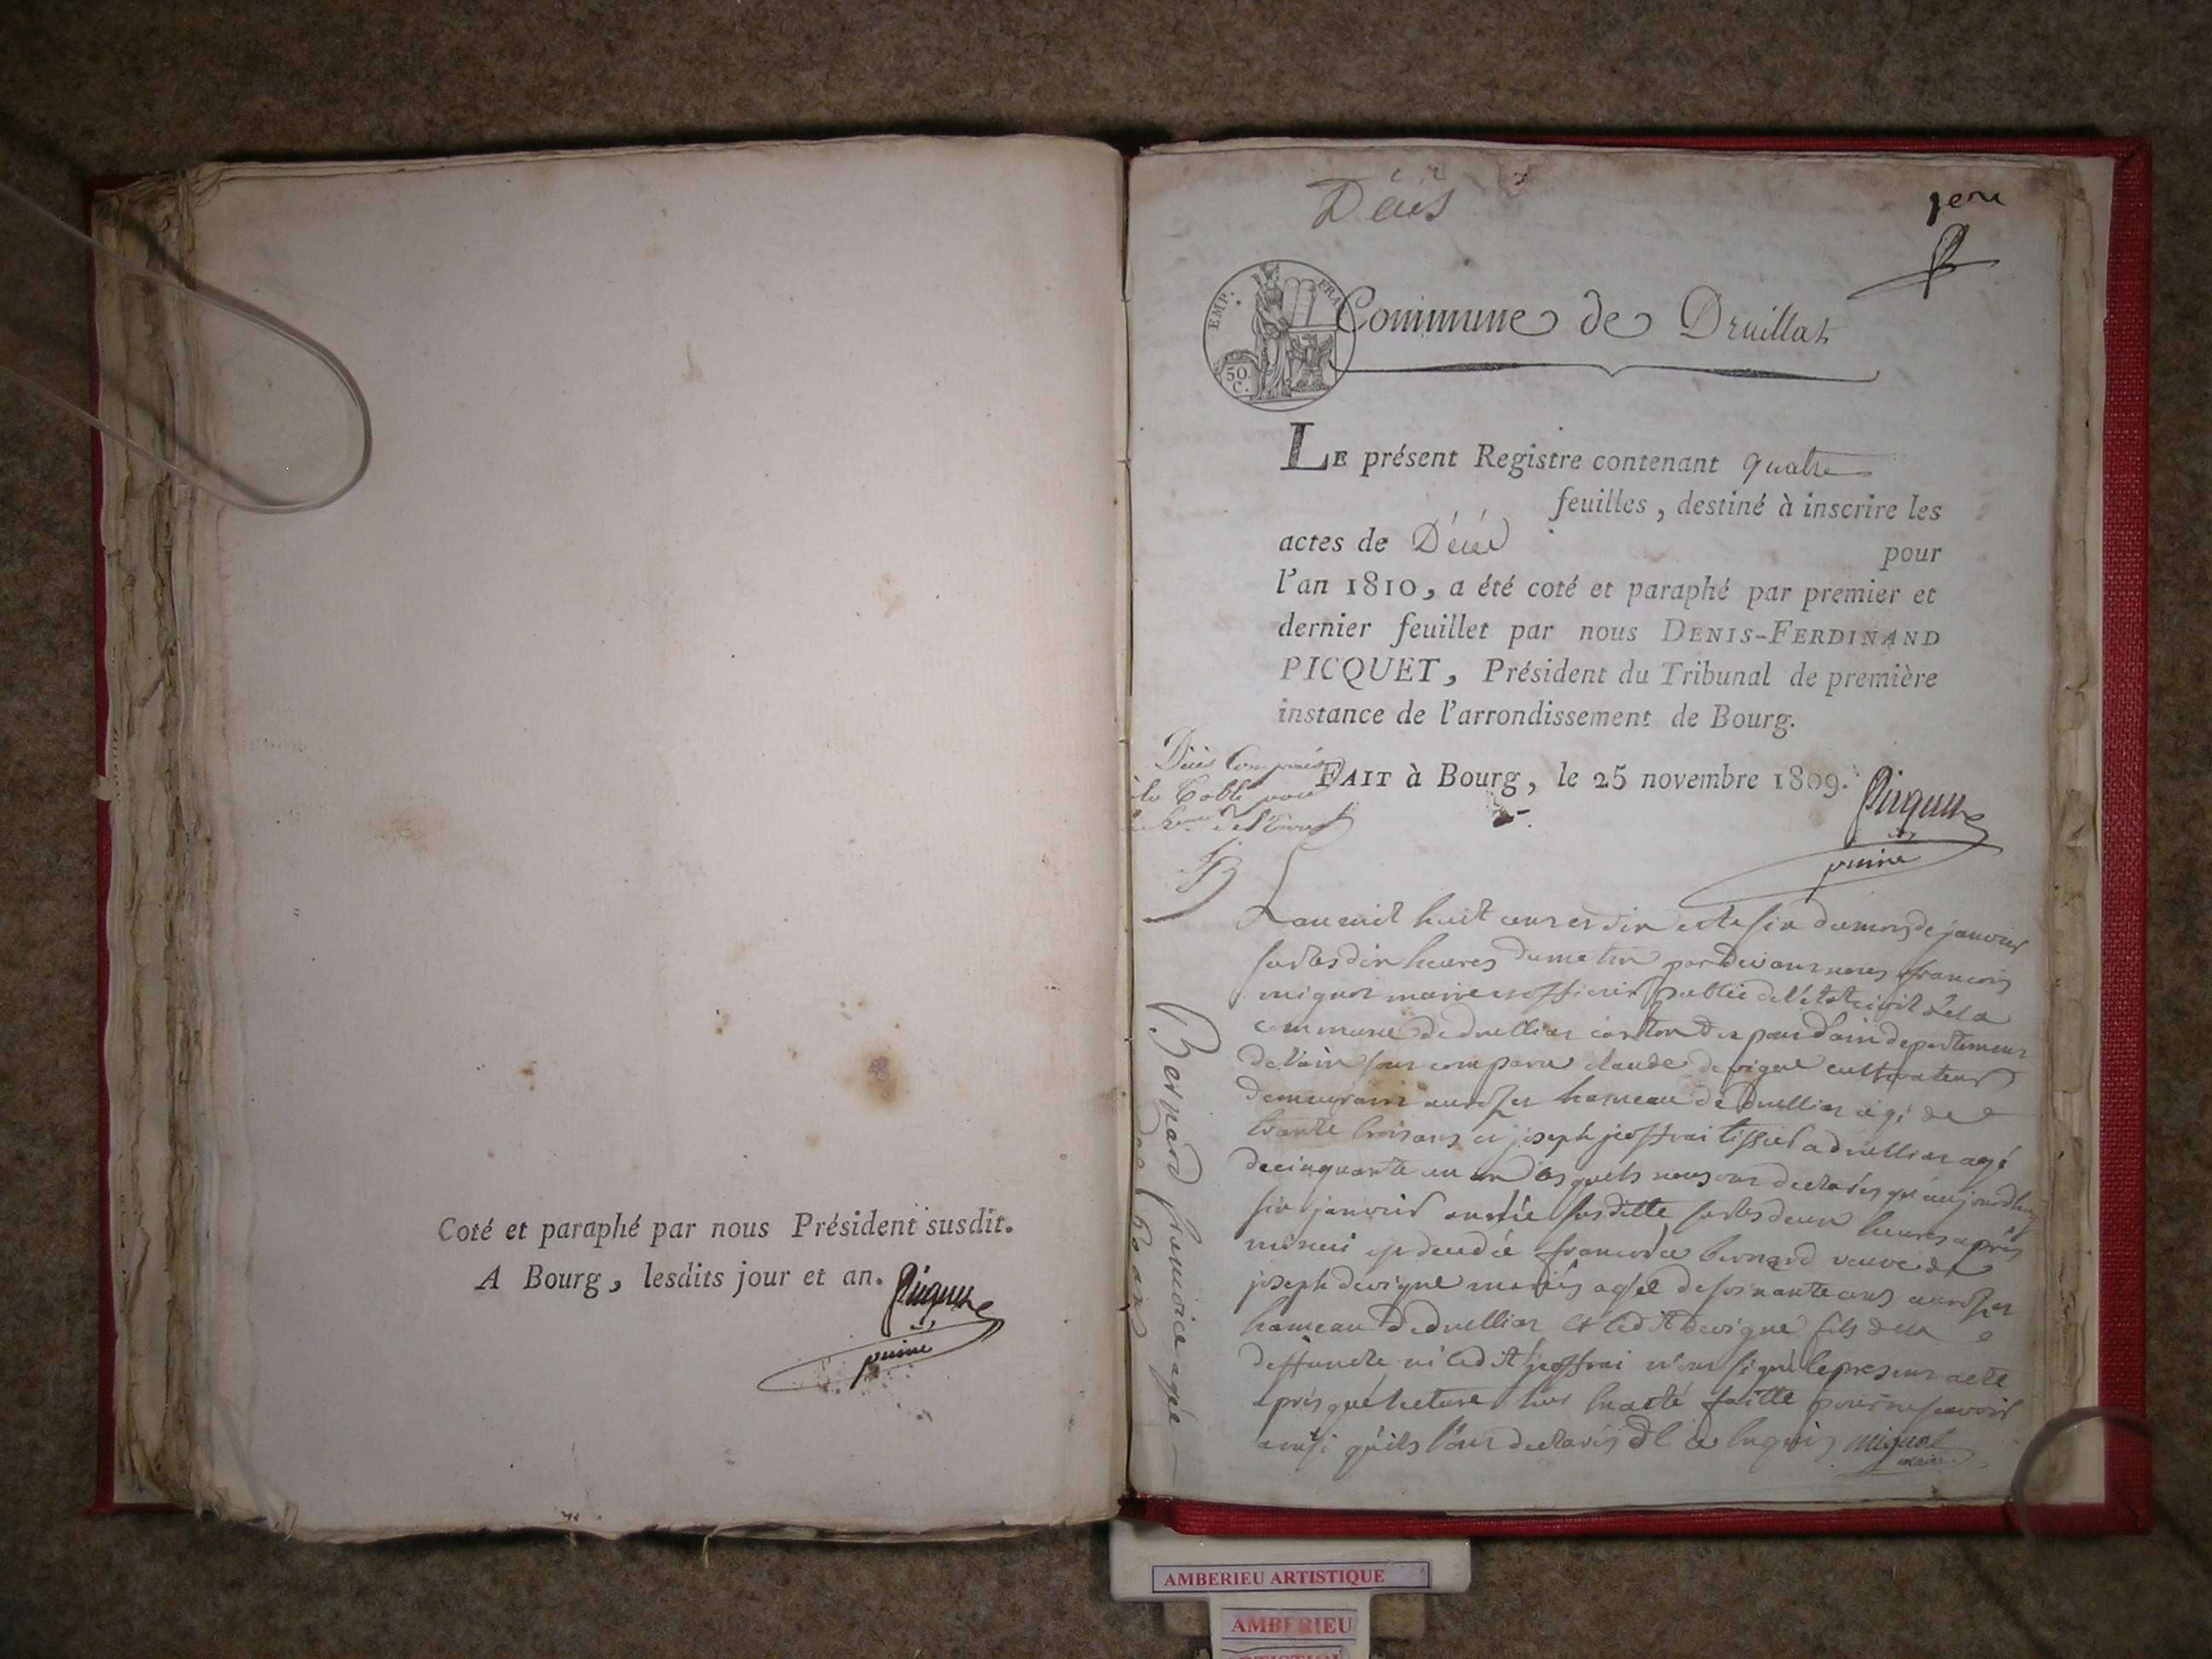 Coté et paraphé par nous Président susdit.
A Bourg, lesdits jour et an.
Picquet
Décès
1er
EMP. FRA
50
C.
Commune de Druillat
LE présent Registre contenant quatre
feuilles, destiné à inscrire les
actes de Décès pour
l'an 1810, a été coté et paraphé par premier et
dernier feuillet par nous DENIS-FERDINAND
PICQUET, Président du Tribunal de première
instance de l'arrondissement de Bourg.
FAIT à Bourg, le 25 novembre 1809.
Picquet
Décès Compris
la Table pour
Bernard francoise agée
de 60 ans
L'an mil huit cens et dix et le six du mois de janvier
sur les dix heures du matin par devant nous francois
mignot maire et officier public de l'état civil de la
commune de druillat canton de pont d'ain departement
de l'ain sont comparu claude devigne cultivateur
demeurant hameau de druillat agé de
trante trois ans et joseph jeoffrai tissier a druillat agé
de cinquante un an lesquels nous ont declarés qu'aujourdhuy
six janvier année susditte sur les deux heures après
minuit est decedée francoise bernard veuve de
joseph devigne agée de soixante ans
hameau de druillat et ledit devigne fils de la
deffuncte ni ledit jeoffrai n'ont signé le present acte
après que lecture leur en a été faitte pour ne scavoir
ainsi qu'ils l'ont declarés de ce enquis mignot
maire
AMBERIEU ARTISTIQUE
AMBERIEU